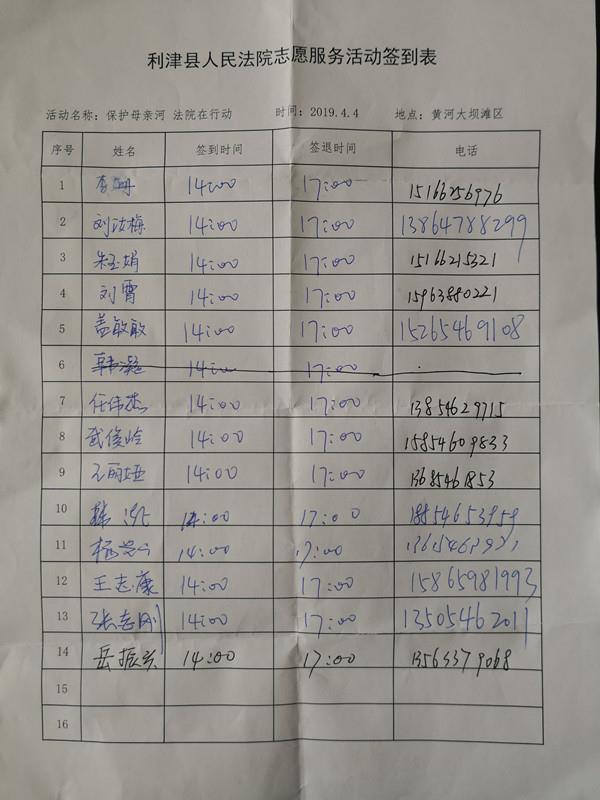 利津县人民法院志愿服务活动签到表
活动名称：保护母亲河 法院在行动 时间：2019.4.4 地点：黄河大坝滩区
序号 姓名 签到时间 签退时间 电话
1 李珊 14:00 17:00 15166256976
2 刘汝梅 14:00 17:00 13864788299
3 朱玉娟 14:00 17:00 1516215321
4 刘霄 14:00 17:00 15963880221
5 盖敏敏 14:00 17:00 15265469108
6 韩凝 14:00 17:00
7 任伟杰 14:00 17:00 13854629715
8 武俊岭 14:00 17:00 15854609833
9 14:00 17:00
10 14:00 17:00 18854653959
11 14:00 17:00
12 王志康 14:00 17:00 15865981993
13 张志刚 14:00 17:00 13505462011
14 岳振兴 14:00 17:00 13563379068
15
16